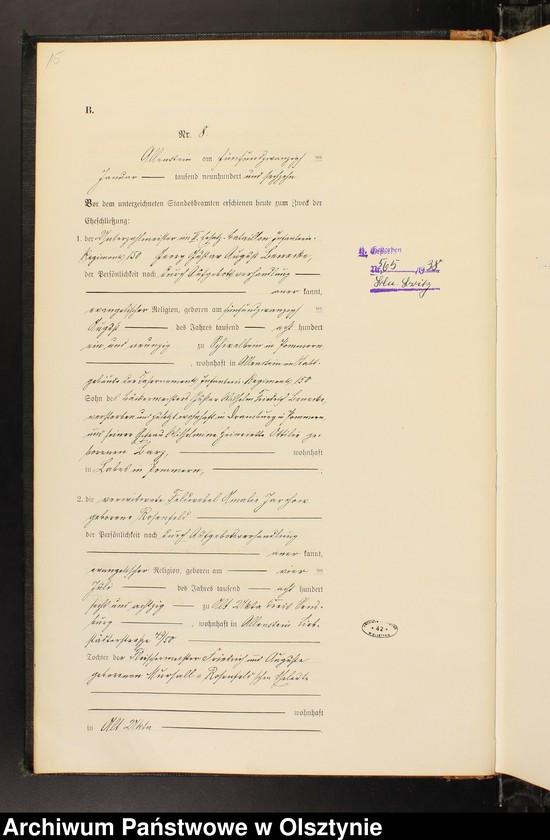 15
B.
Nr. 8
Allenstein am fünfundzwanzigsten
Januar tausend neunhundert und sechzehn
Vor dem unterzeichneten Standesbeamten erschienen heute zum Zweck der
Eheschließung:
1. der Unterzahlmeister im II. Ersatz-Bataillon Infanterie-
Regiments 150 Georg Gustav August Benecke,
der Persönlichkeit nach durch Aufgebotsverhandlung
aner kannt,
evangelischer Religion, geboren am fünfundzwanzigsten
August des Jahres tausend acht hundert
ein und neunzig zu Schivelbein in Pommern,
, wohnhaft in Allenstein im Stabs-
gebäude des Infanterie Regiments 150
Sohn des Bäckermeisters Gustav Wilhelm Benecke,
verstorben und zuletzt wohnhaft in Dramburg in Pommern,
und seiner Ehefrau Wilhelmine Henriette Ottilie ge-
borenen wohnhaft
in Labes in Pommern,
2. die verwitwete Feldwebel Amalie
geborene Rosenfeld
der Persönlichkeit nach durch Aufgebotsverhandlung
aner kannt,
evangelischer Religion, geboren am vier ten
Juli des Jahres tausend acht hundert
sechs und achtzig zu Alt Ukta Kreis Sens-
burg , wohnhaft in Allenstein Lieb-
städterstraße 49/50
Tochter der Fleischermeister Friedrich und Auguste
geborenen Rosenfeld'schen Eheleute
wohnhaft
in Alt Ukta
Gestorben
Nr. 565 /19 38
42
Archiwum Państwowe w Olsztynie